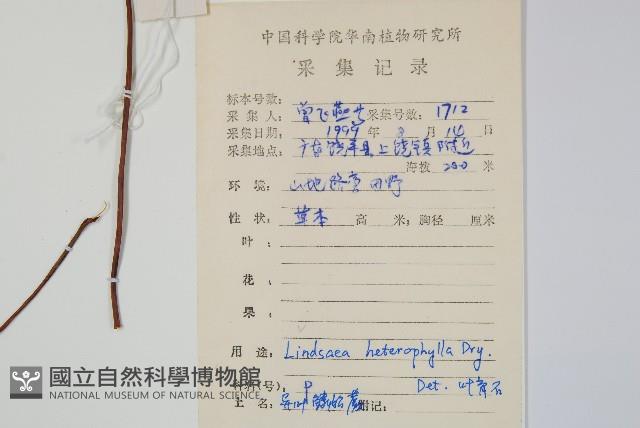 中国科学院华南植物研究所
采集记录
标本号数:
采集人: 曾飞燕 采集号数: 1712
采集日期: 1999 年 月 14 日
采集地点: 广东饶平县上饶镇附近
海拔 米
环境: 山地路旁田野
性状: 草本 高 米; 胸径 厘米
叶:
花:
果:
用途: Lindsaea heterophylla Dry.
科名(号): P Det. 叶育石
土名: 附记:
國立自然科學博物館
NATIONAL MUSEUM OF NATURAL SCIENCE